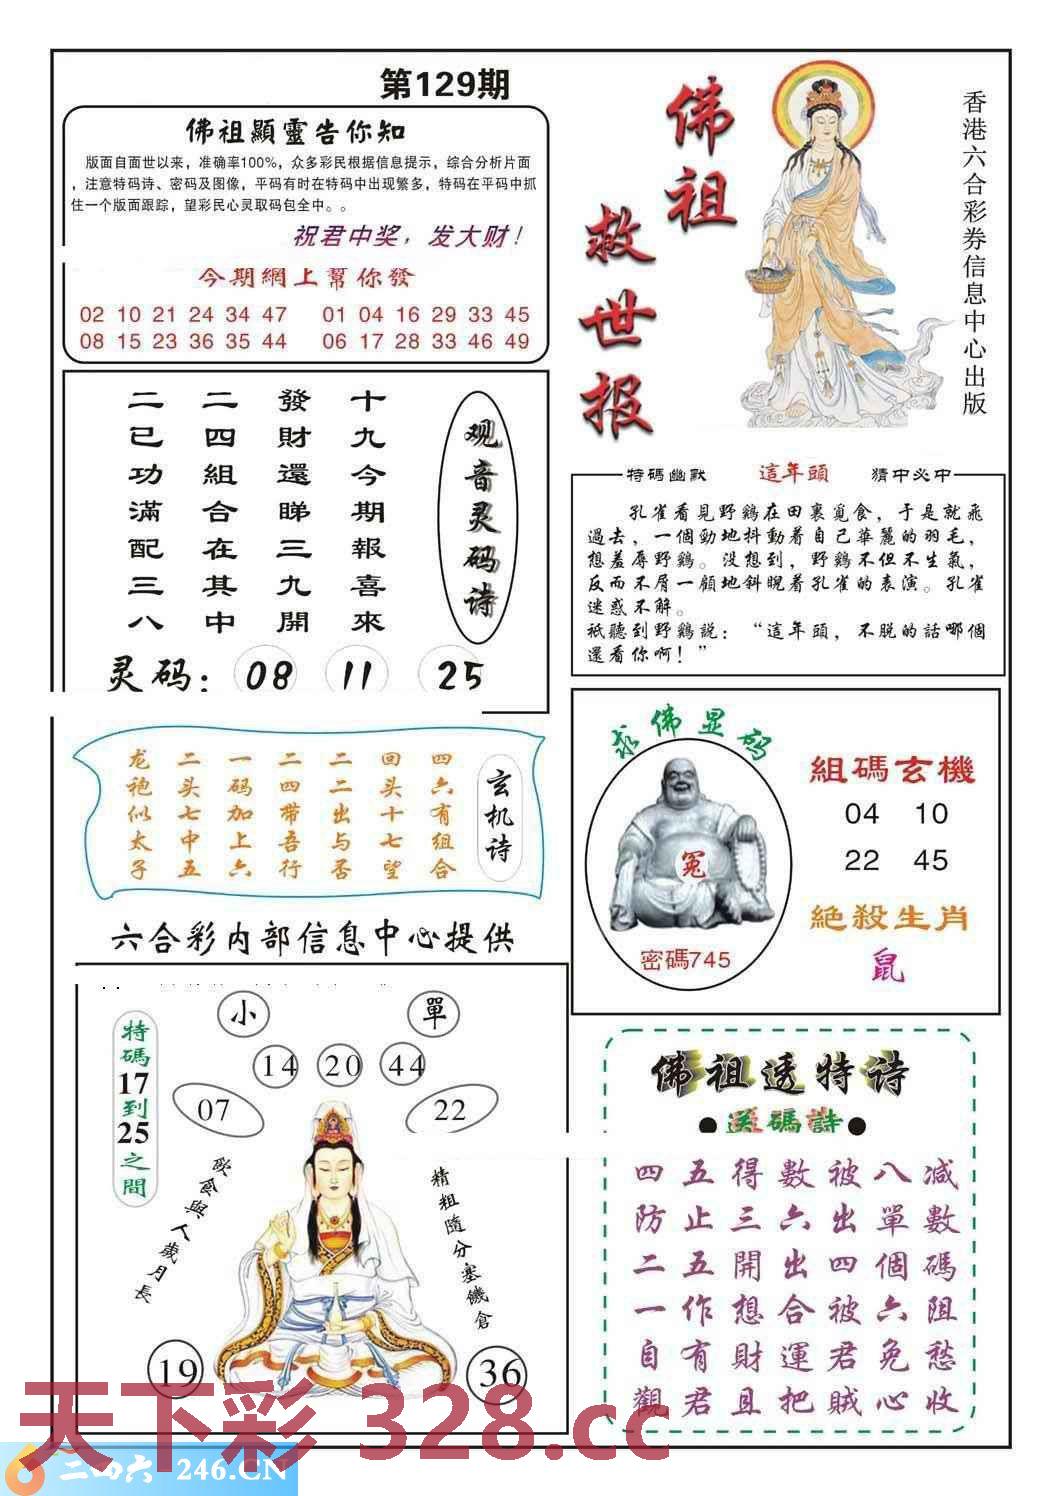 第129期
佛祖顯靈告你知
版面自面世以来，准确率100%，众多彩民根据信息提示，综合分析片面
，注意特码诗、密码及图像，平码有时在特码中出现繁多，特码在平码中抓
住一个版面跟踪，望彩民心灵取码包全中。。
祝君中奖，发大财！
今期網上幫你發
02 10 21 24 34 47 01 04 16 29 33 45
08 15 23 36 35 44 06 17 28 33 46 49
佛祖
救世报
香港六合彩券信息中心出版
观音灵码诗
十九今期報喜來
發財還睇三九開
二四組合在其中
二已功滿配三八
灵码：08 11 25
特碼幽默 這年頭 猜中必中
孔雀看見野鷄在田裏覓食，于是就飛
過去，一個勁地抖動着自己華麗的羽毛，
想羞辱野鷄。没想到，野鷄不但不生氣，
反而不屑一顧地斜睨着孔雀的表演。孔雀
迷惑不解。
衹聽到野鷄説：“這年頭，不脱的話哪個
還看你啊！”
玄机诗
四六有组合
回头十七望
二二出与否
二四带吾行
一码加上六
二头七中五
龙袍似太子
求佛显码
冤
密碼745
組碼玄機
04 10
22 45
絕殺生肖
鼠
六合彩内部信息中心提供
小 單
14 20 44
07 22
特碼17到25之間
飲食與人歲月長
精粗隨分塞饑倉
19 36
佛祖透特诗
●送碼詩●
四五得數被八减
防止三六出單數
二五開出四個碼
一作想合被六阻
自有財運君免愁
觀君且把賊心收
天下彩 328.cc
二四六 246.CN